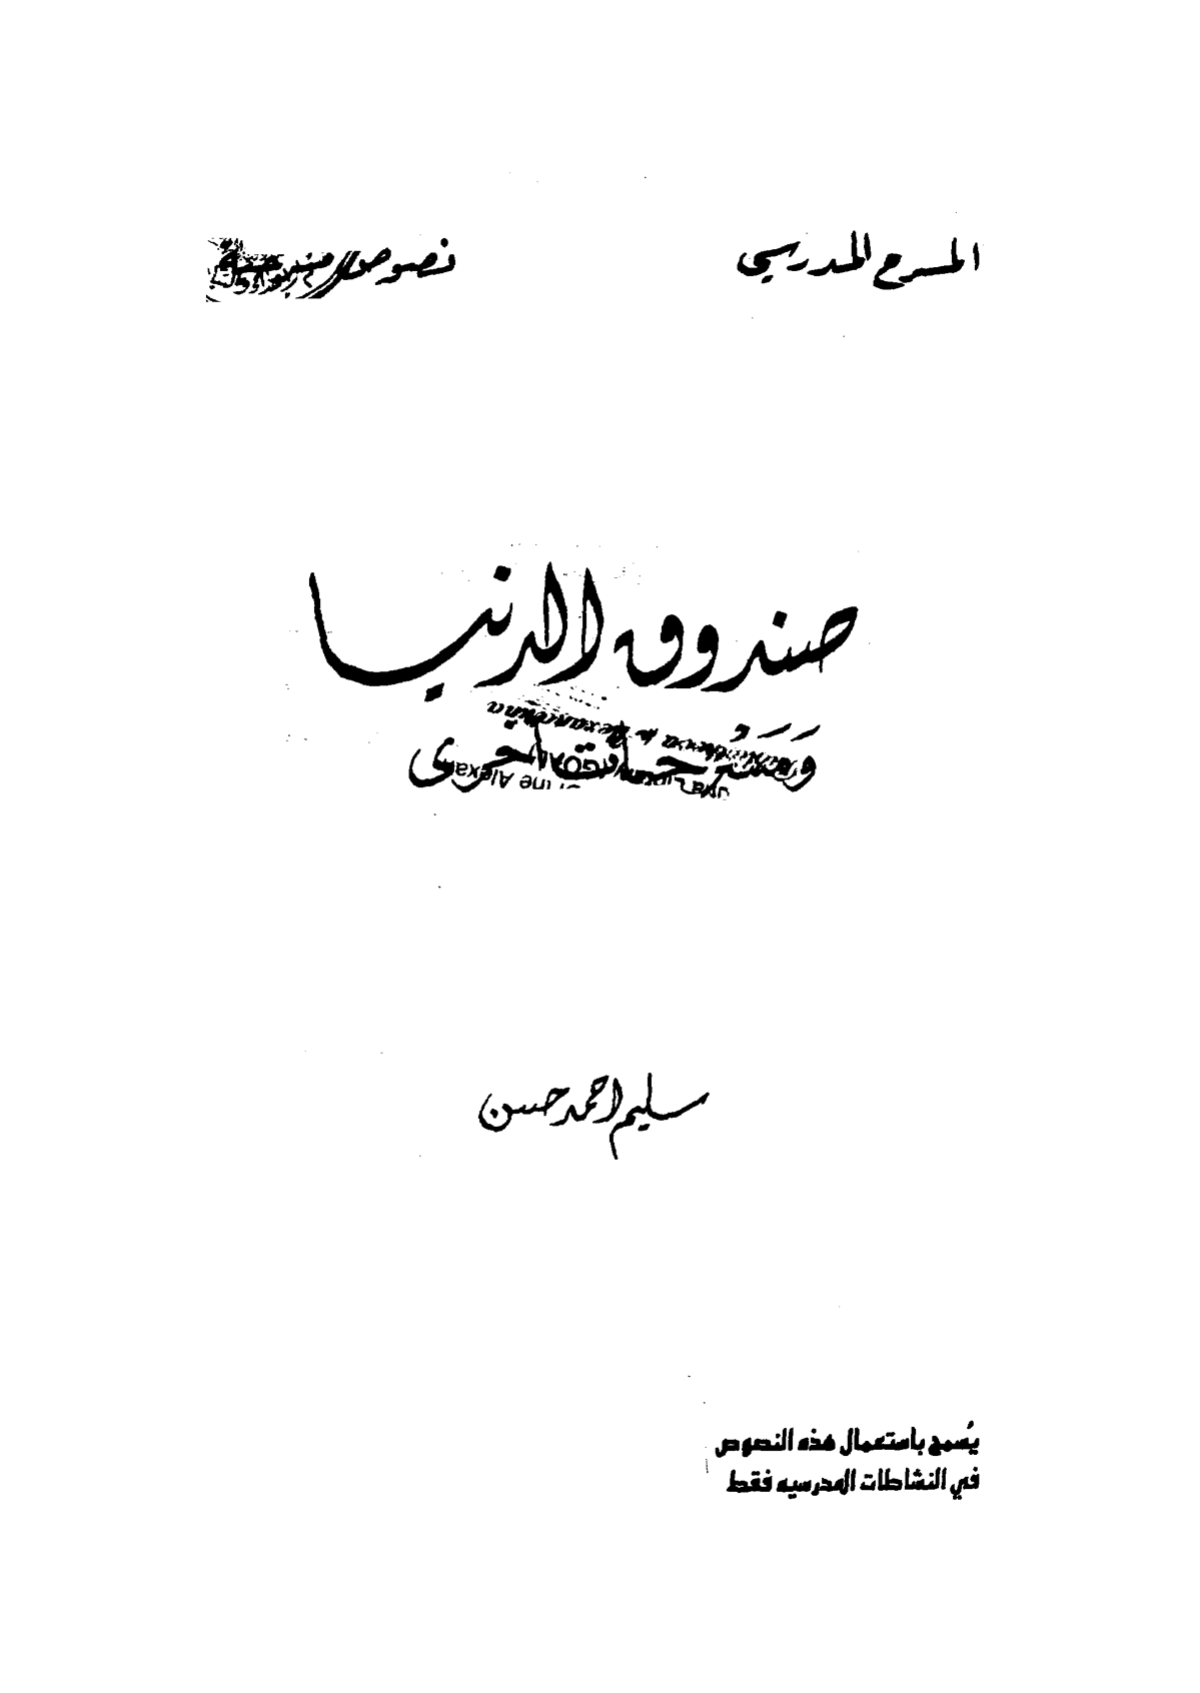 المسرح المدرسي
نصوص
صندوق الدنيا
وَمَسْرَحيات أخرى
سليم احمد حسن
يُسمح باستعمال هذه النصوص
في النشاطات المدرسيه فقط